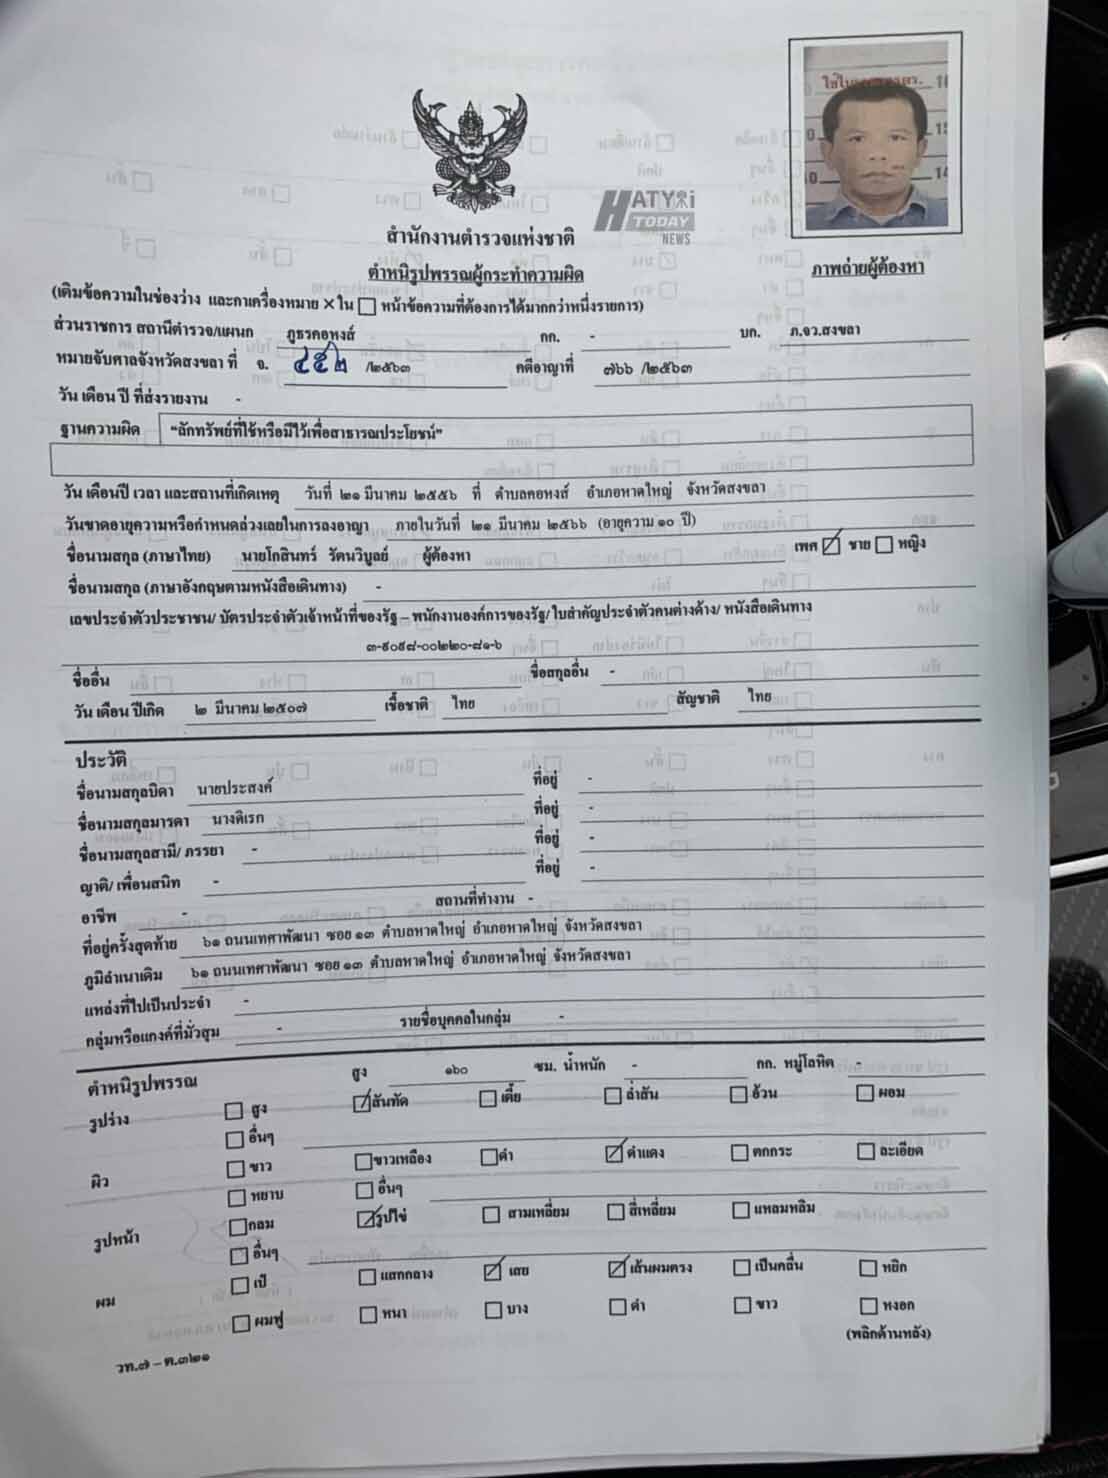 ใช้ใน
HATYAi
TODAY
NEWS
สำนักงานตำรวจแห่งชาติ
ตำหนิรูปพรรณผู้กระทำความผิด
ภาพถ่ายผู้ต้องหา
(เติมข้อความในช่องว่าง และกาเครื่องหมาย × ใน ☐ หน้าข้อความที่ต้องการได้มากกว่าหนึ่งรายการ)
ส่วนราชการ สถานีตำรวจ/แผนก ภูธรคอหงส์ กก. - บก. ภ.จว.สงขลา
หมายจับศาลจังหวัดสงขลา ที่ จ. ๔๕๒ /๒๕๖๓ คดีอาญาที่ ๗๖๖ /๒๕๖๓
วัน เดือน ปี ที่ส่งรายงาน -
ฐานความผิด "ลักทรัพย์ที่ใช้หรือมีไว้เพื่อสาธารณประโยชน์"
วัน เดือนปี เวลา และสถานที่เกิดเหตุ วันที่ ๒๑ มีนาคม ๒๕๕๖ ที่ ตำบลคอหงส์ อำเภอหาดใหญ่ จังหวัดสงขลา
วันขาดอายุความหรือกำหนดล่วงเลยในการลงอาญา ภายในวันที่ ๒๑ มีนาคม ๒๕๖๖ (อายุความ ๑๐ ปี)
ชื่อนามสกุล (ภาษาไทย) นายโกสินทร์ รัตนวิบูลย์ ผู้ต้องหา เพศ ☑ ชาย ☐ หญิง
ชื่อนามสกุล (ภาษาอังกฤษตามหนังสือเดินทาง) -
เลขประจำตัวประชาชน/ บัตรประจำตัวเจ้าหน้าที่ของรัฐ – พนักงานองค์การของรัฐ/ ใบสำคัญประจำตัวคนต่างด้าว/ หนังสือเดินทาง
๓-๙๐๙๘-๐๐๒๒๐-๘๑-๖
ชื่ออื่น ชื่อสกุลอื่น -
วัน เดือน ปีเกิด ๒ มีนาคม ๒๕๐๗ เชื้อชาติ ไทย สัญชาติ ไทย
ประวัติ
ชื่อนามสกุลบิดา นายประสงค์ ที่อยู่ -
ชื่อนามสกุลมารดา นางดิเรก ที่อยู่ -
ชื่อนามสกุลสามี/ ภรรยา - ที่อยู่ -
ญาติ/ เพื่อนสนิท - ที่อยู่ -
อาชีพ - สถานที่ทำงาน -
ที่อยู่ครั้งสุดท้าย ๖๑ ถนนเทศาพัฒนา ซอย ๑๓ ตำบลหาดใหญ่ อำเภอหาดใหญ่ จังหวัดสงขลา
ภูมิลำเนาเดิม ๖๑ ถนนเทศาพัฒนา ซอย ๑๓ ตำบลหาดใหญ่ อำเภอหาดใหญ่ จังหวัดสงขลา
แหล่งที่ไปเป็นประจำ -
กลุ่มหรือแกงค์ที่มั่วสุม - รายชื่อบุคคลในกลุ่ม -
ตำหนิรูปพรรณ สูง ๑๖๐ ซม. น้ำหนัก - กก. หมู่โลหิต -
รูปร่าง ☐ สูง ☑ สันทัด ☐ เตี้ย ☐ ล่ำสัน ☐ อ้วน ☐ ผอม
☐ อื่นๆ
ผิว ☐ ขาว ☐ ขาวเหลือง ☐ ดำ ☑ ดำแดง ☐ ตกกระ ☐ ละเอียด
☐ หยาบ ☐ อื่นๆ
รูปหน้า ☐ กลม ☑ รูปไข่ ☐ สามเหลี่ยม ☐ สี่เหลี่ยม ☐ แหลมหลิม
☐ อื่นๆ
ผม ☐ เป๋ ☐ แสกกลาง ☑ เสย ☑ เส้นผมตรง ☐ เป็นคลื่น ☐ หยิก
☐ ผมฟู ☐ หนา ☐ บาง ☐ ดำ ☐ ขาว ☐ หงอก
(พลิกด้านหลัง)
วท.๗ – ต.๓๒๑